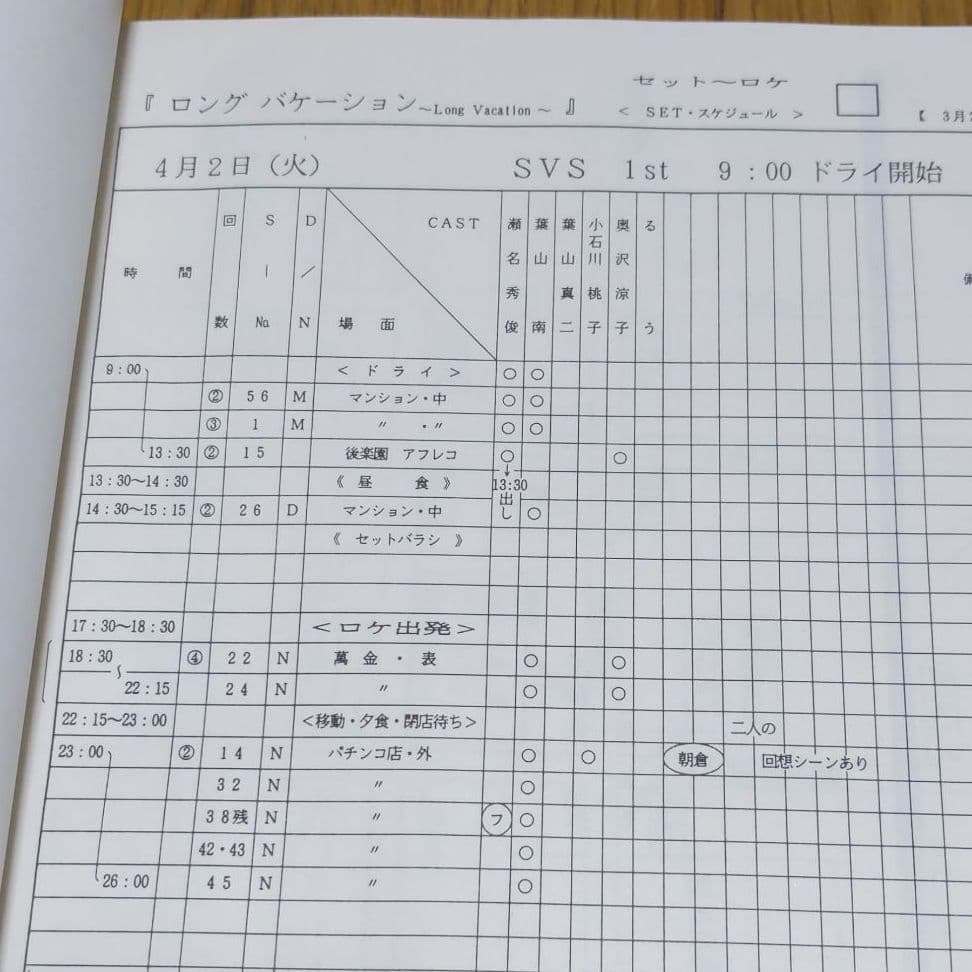 セット～ロケ
『 ロング バケーション～Long Vacation～ 』 < SET・スケジュール > 【 3月
4月2日（火） SVS 1st 9:00 ドライ開始
時間 回数 S｜№ D／N 場面 CAST 瀬名秀俊 葉山南 葉山真二 小石川桃子 奥沢涼子 るう 備
9:00 < ドライ > ○ ○
② 56 M マンション・中 ○ ○
③ 1 M 〃 ・〃 ○ ○
13:30 ② 15 後楽園 アフレコ ○ ○
13:30～14:30 《 昼 食 》 ↓ 13:30 出し
14:30～15:15 ② 26 D マンション・中 ○
《 セットバラシ 》
17:30～18:30 <ロケ出発>
18:30 ④ 22 N 萬金・表 ○ ○
～22:15 24 N 〃 ○ ○
22:15～23:00 <移動・夕食・閉店待ち> 二人の
23:00 ② 14 N パチンコ店・外 ○ ○ 朝倉 回想シーンあり
32 N 〃 ○
38残 N 〃 フ ○
42・43 N 〃 ○
26:00 45 N 〃 ○